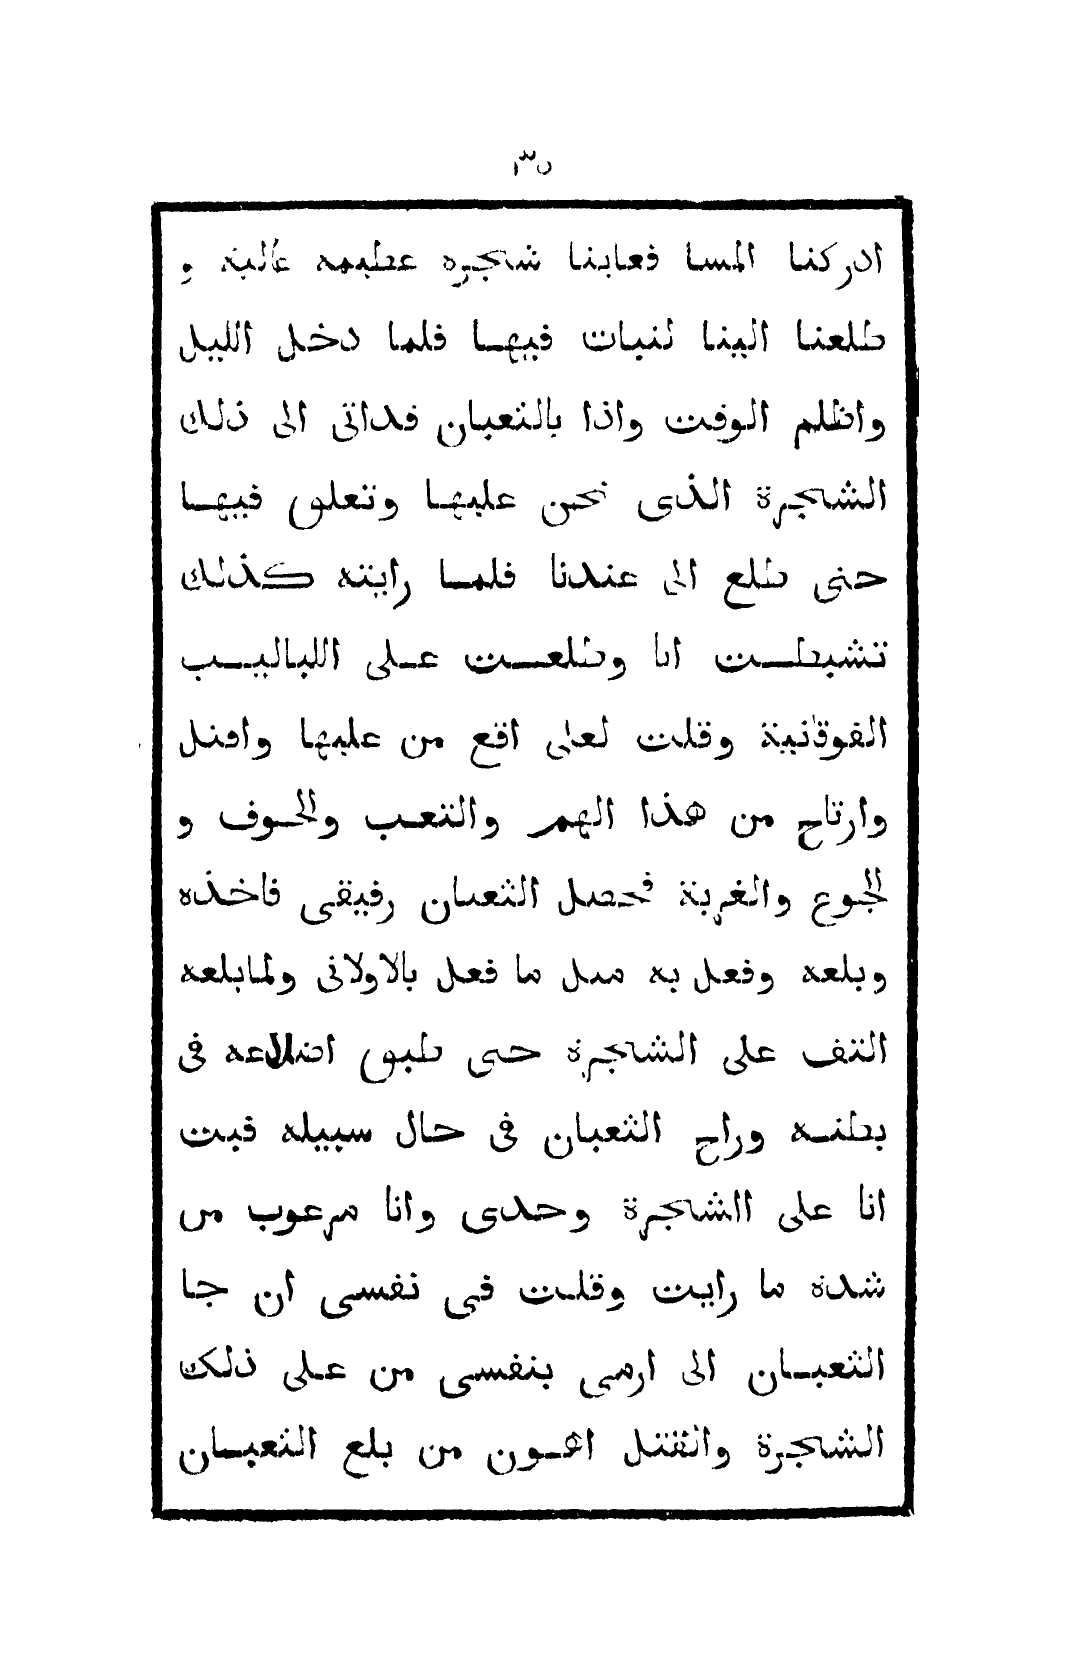 ٣٥
ادركنا المسا فعاينا شجره عظيمه عالية و
طلعنا الينا لنبات فيها فلما دخل الليل
واظلم الوقت واذا بالثعبان قداتى الى ذلك
الشجرة الذى نحن عليها وتعلق فيها
حتى طلع الى عندنا فلما رايته كذلك
تشيطت انا وطلعت على اللباليب
الفوقانية وقلت لعلى اقع من عليها واقتل
وارتاح من هذا الهم والتعب والخوف و
الجوع والغربة فحصل الثعبان رفيقى فاخذه
وبلعه وفعل به مثل ما فعل بالاولانى ولمابلعه
التف على الشجرة حتى طبق اضلاعه فى
بطنه وراح الثعبان فى حال سبيله فبت
انا على االشجرة وحدى وانا مرعوب من
شدة ما رايت وقلت فى نفسى ان جا
الثعبان الى ارمى بنفسى من على ذلك
الشجرة وانقتل اهون من بلع الثعبان